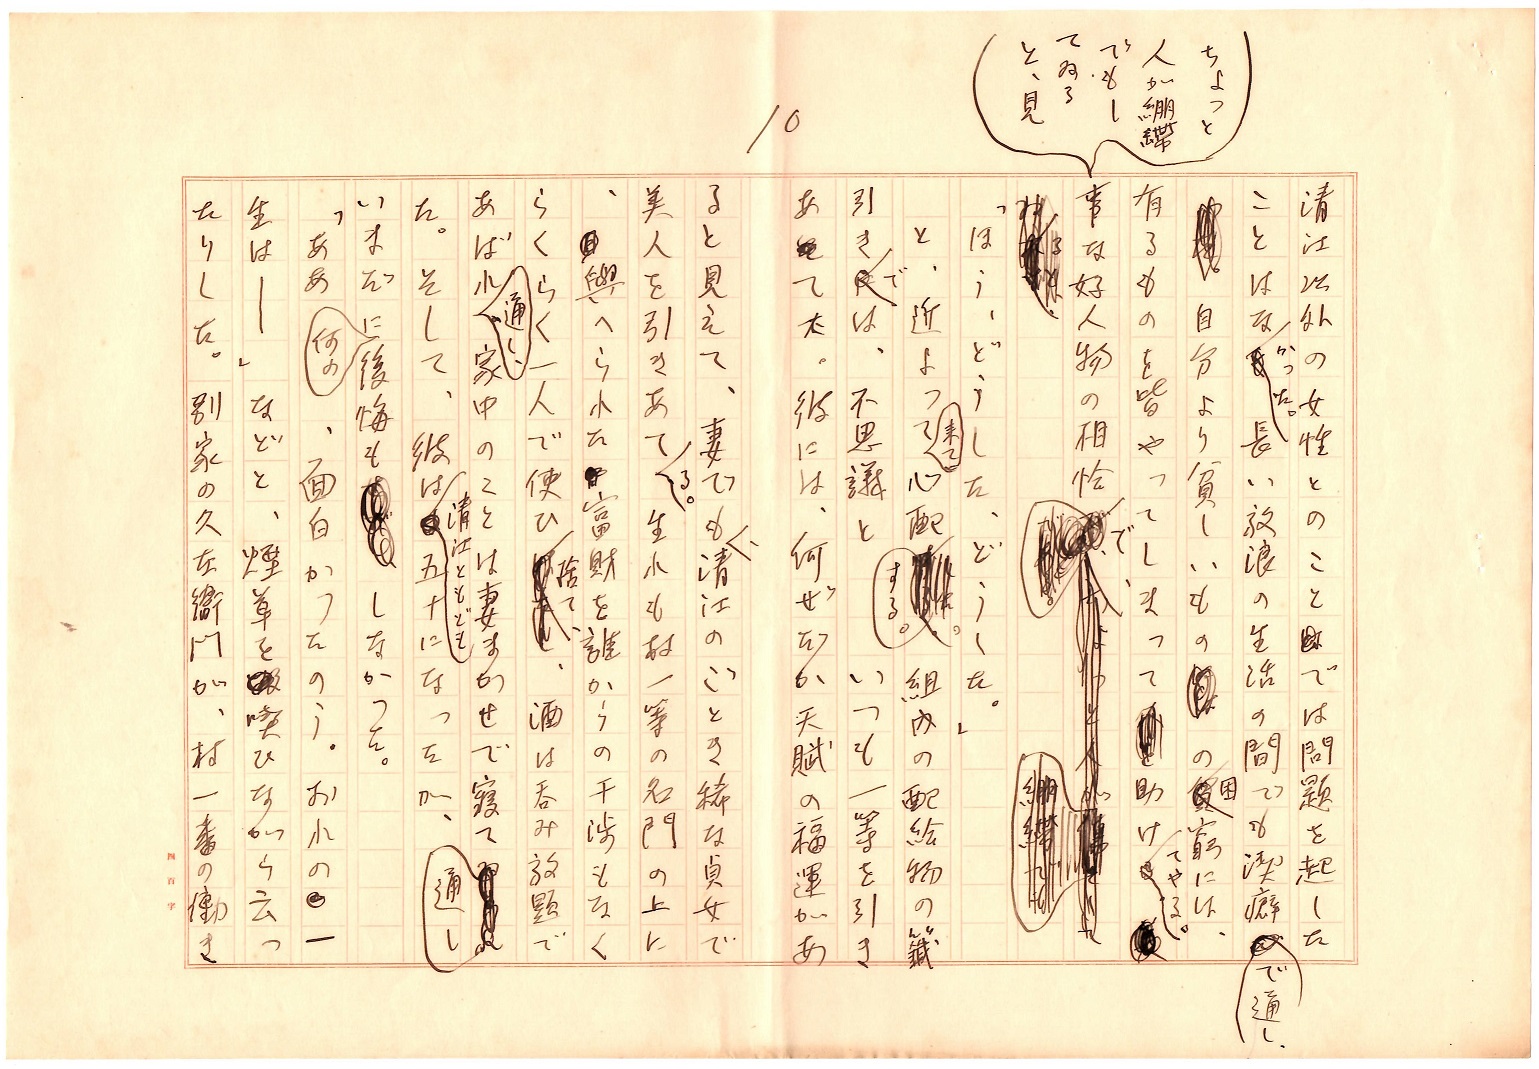 10
ちょっと
人が繃帯
でもし
てゐる
と、見
清江以外の女性とのことでは問題を起した
ことはなかつた。長い放浪の生活の間でも潔癖で通し、
自分より貧しいものの困窮には、
有るものを皆やつてしまつて助けてやる。
事な好人物の相恰で、
ると、
「ほう、どうした、どうした。」
と、近よつて来て心配する。組内の配給物の籤
引きでは、不思議といつも一等を引き
あてて太。彼には、何ぜだか天賦の福運があ
ると見えて、妻でも清江のごとき稀な貞女で
美人を引きあてる。生れも村一等の名門の上に
、與へられた富財を誰からの干渉もなく
らくらく一人で使ひ捨て、酒は呑み放題で
あばれ通し、家中のことは妻まかせで寝て通し
た。そして、彼は清江ともども五十になつたが、
いまだに後悔もしなかつた。
「ああ、面白かつたのう。おれの一
何の
生はー」などと、煙草を喫ひながら云つ
たりした。別家の久左衛門が、村一番の働き
四百字